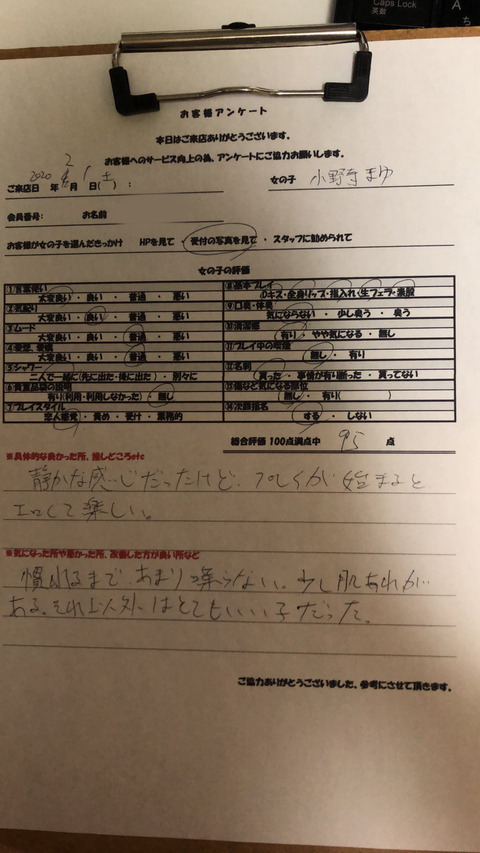 Caps Lock
英数
A
ち
お客様アンケート
本日はご来店ありがとうございます。
お客様へのサービス向上の為、アンケートにご協力お願いします。
ご来店日 2020 年 2 月 1 日( 土 ) : 女の子 小野寺まゆ
会員番号: お名前
お客様が女の子を選んだきっかけ HPを見て ・ 受付の写真を見て ・ スタッフに勧められて
女の子の評価
①言葉使い
大変良い ・ 良い ・ 普通 ・ 悪い
②気配り
大変良い ・ 良い ・ 普通 ・ 悪い
③ムード
大変良い ・ 良い ・ 普通 ・ 悪い
④愛想、愛嬌
大変良い ・ 良い ・ 普通 ・ 悪い
⑤シャワー
二人で一緒に(先に出た・後に出た) ・ 別々に
⑥貴重品袋の説明
有り(利用・利用しなかった) ・ 無し
⑦プレイスタイル
恋人感覚 ・ 責め ・ 受け ・ 業務的
⑧基本プレイ
Dキス・全身リップ・指入れ・生フェラ・素股
⑨口臭・体臭
気にならない ・ 少し臭う ・ 臭う
⑩清潔感
有り ・ やや気になる ・ 無し
⑪プレイ中の喫煙
無し ・ 有り
⑫名刺
貰った ・ 事情が有り断った ・ 貰ってない
⑬傷など気になる部位
無し ・ 有り( )
⑭次回指名
する ・ しない
総合評価 100点満点中 95 点
※具体的な良かった所、推しどころetc
静かな感じだったけど、プレイが始まると
エロくて楽しい。
※気になった所や悪かった所、改善した方が良い所など
慣れるまで、あまり喋らない。少し肌あれが
ある。それ以外はとてもいい子だった。
ご協力ありがとうございました、参考にさせて頂きます。